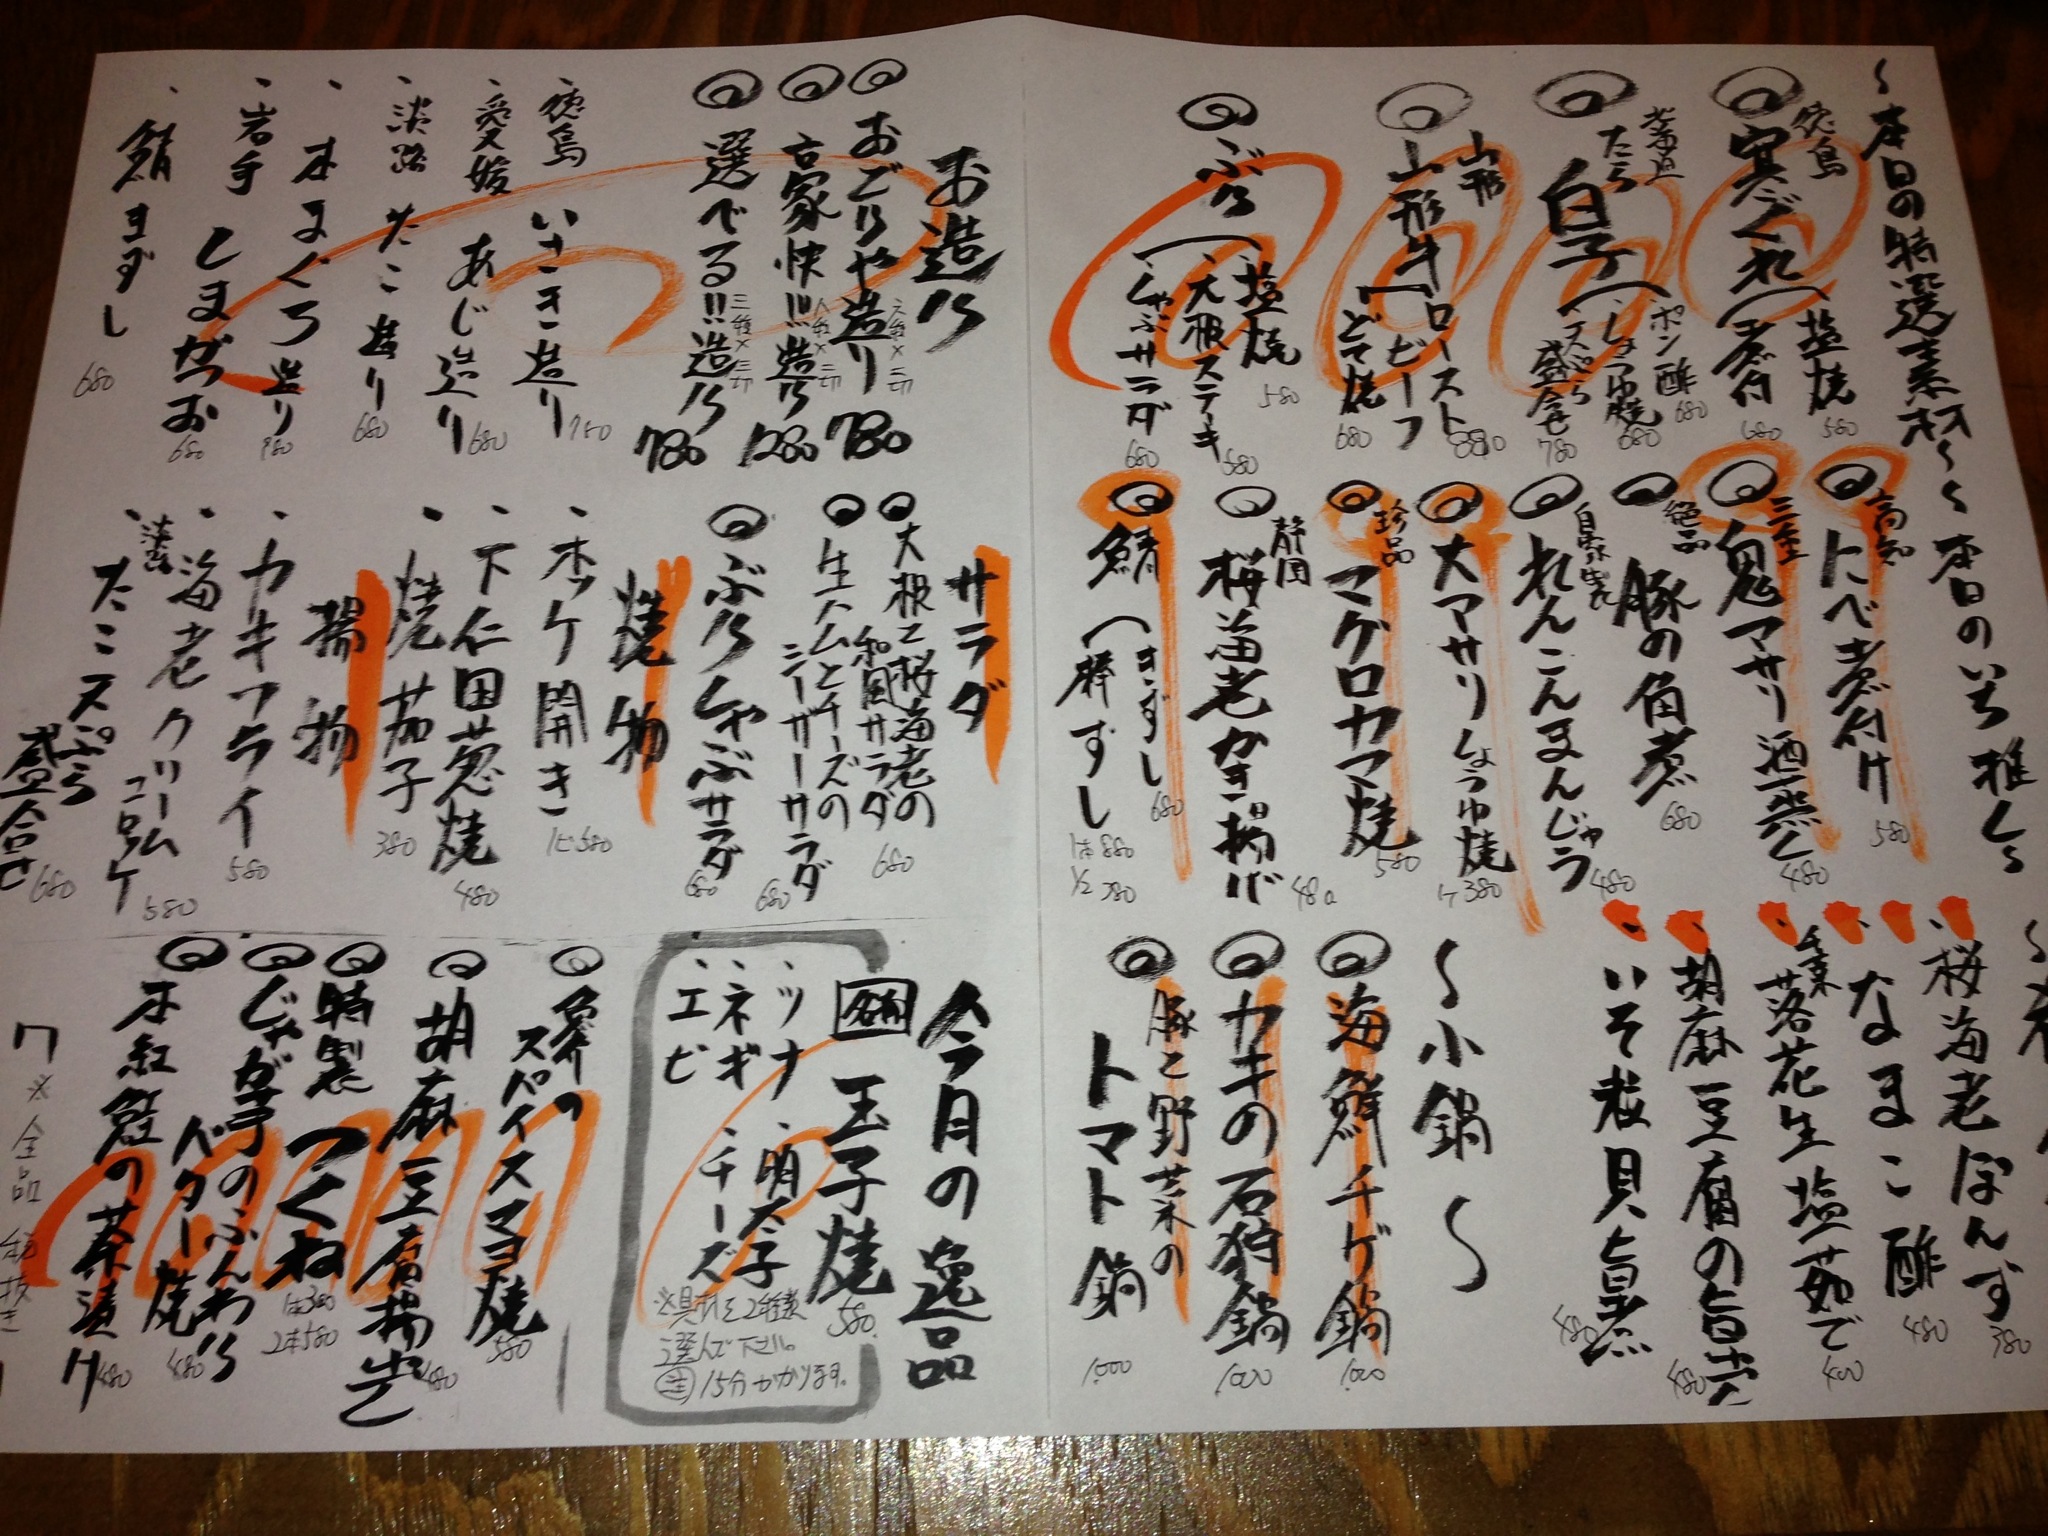 ～本日の特選素材～
徳島
寒ぐれ
塩焼 580
煮付 680
北海道
たら
白子
ポン酢 680
しょうゆ焼 680
天ぷら盛合せ 780
山形
山形牛
ローストビーフ 880
どて焼 680
ぶり
塩焼 580
大根ステーキ 680
しゃぶサラダ 680
～本日のいち推し～
高知
とべ煮付け 580
三重
鬼アサリ酒蒸し 480
絶品
豚の角煮 680
自家製
れんこんまんじゅう 480
大アサリしょうゆ焼 1ヶ380
珍品
マグロカマ焼 580
静岡
桜海老かき揚げ 480
鯖
きずし 680
棒ずし 1本 880
1/2 380
桜海老ぽんず 380
なまこ酢 480
千葉
落花生塩茹で 400
胡麻豆腐の旨煮 480
いそ粒貝旨煮 480
～小鍋～
海鮮チゲ鍋 1,000
カキの石狩鍋 1,000
豚と野菜の
トマト鍋 1,000
お造り
おごりや造り 780
豪快!!!造り 1280
選べる!!造り 780
三種×三切
徳島 いさき造り 780
愛媛 あじ造り 680
淡路 たこ造り 680
本まぐろ造り 980
岩手 しまがつお 680
鯖きずし 680
サラダ
大根と桜海老の
和風サラダ 680
生ハムとチーズの
シーザーサラダ 680
ぶりしゃぶサラダ 680
焼物
ホッケ開き 1ピ 580
下仁田葱焼 480
焼茄子 380
揚物
カキフライ 580
海老クリーム
コロッケ 580
淡路
たこ天ぷら
盛合せ 680
今月の逸品
玉子焼 580
・ツナ ・明太子
・ネギ ・チーズ
・エビ
※具材を2種類
選んで下さい。
注 15分かかります。
スパイスマヨ焼 580
胡麻豆腐揚出し 480
特製
つくね 1本300
2本580
じゃが芋のふんわり
バター焼 480
本紅鮭の茶漬け 480
※全品 税抜き